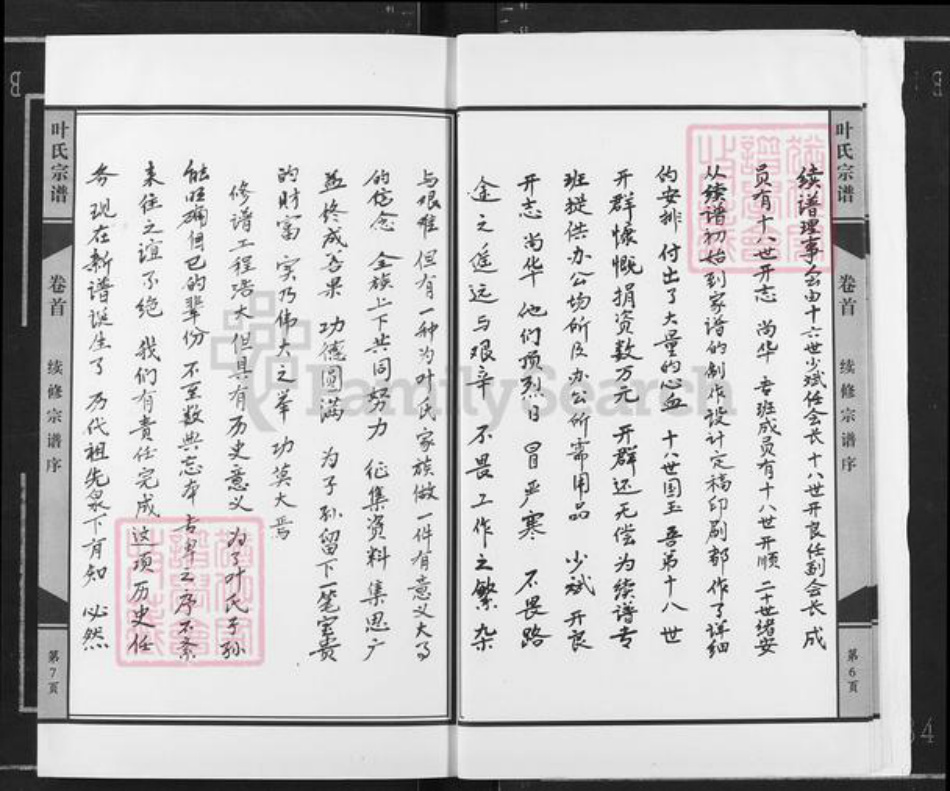 叶氏宗谱
卷首
续修宗谱序
第6页
续谱理事会由十六世少斌任会长 十八世开良任副会长 成
员有十八世开志 尚华 专班成员有十八世开顺 二十世绪安
从续谱初始到家谱的制作设计定稿印刷都作了详细
的安排 付出了大量的心血 十八世国玉 吾弟十八世
开群慷慨捐资数万元 开群还无偿为续谱专
班提供办公场所及办公所需用品 少斌 开良
开志 尚华 他们顶烈日 冒严寒 不畏路
途之遥远与艰辛 不畏工作之繁杂
与艰难 但有一种为叶氏家族做一件有意义大事
的信念 全族上下共同努力 征集资料 集思广
益 终成善果 功德圆满 为子孙留下一笔宝贵
的财富 实乃伟大之举 功莫大焉
修谱工程浩大但具有历史意义 为了叶氏子孙
能明确自己的辈份 不至数典忘本 长卑之序不紊
来往之谊不绝 我们有责任完成这项历史任
务 现在新谱诞生了 历代祖先泉下有知 必然
叶氏宗谱
卷首
续修宗谱序
第7页
FamilySearch